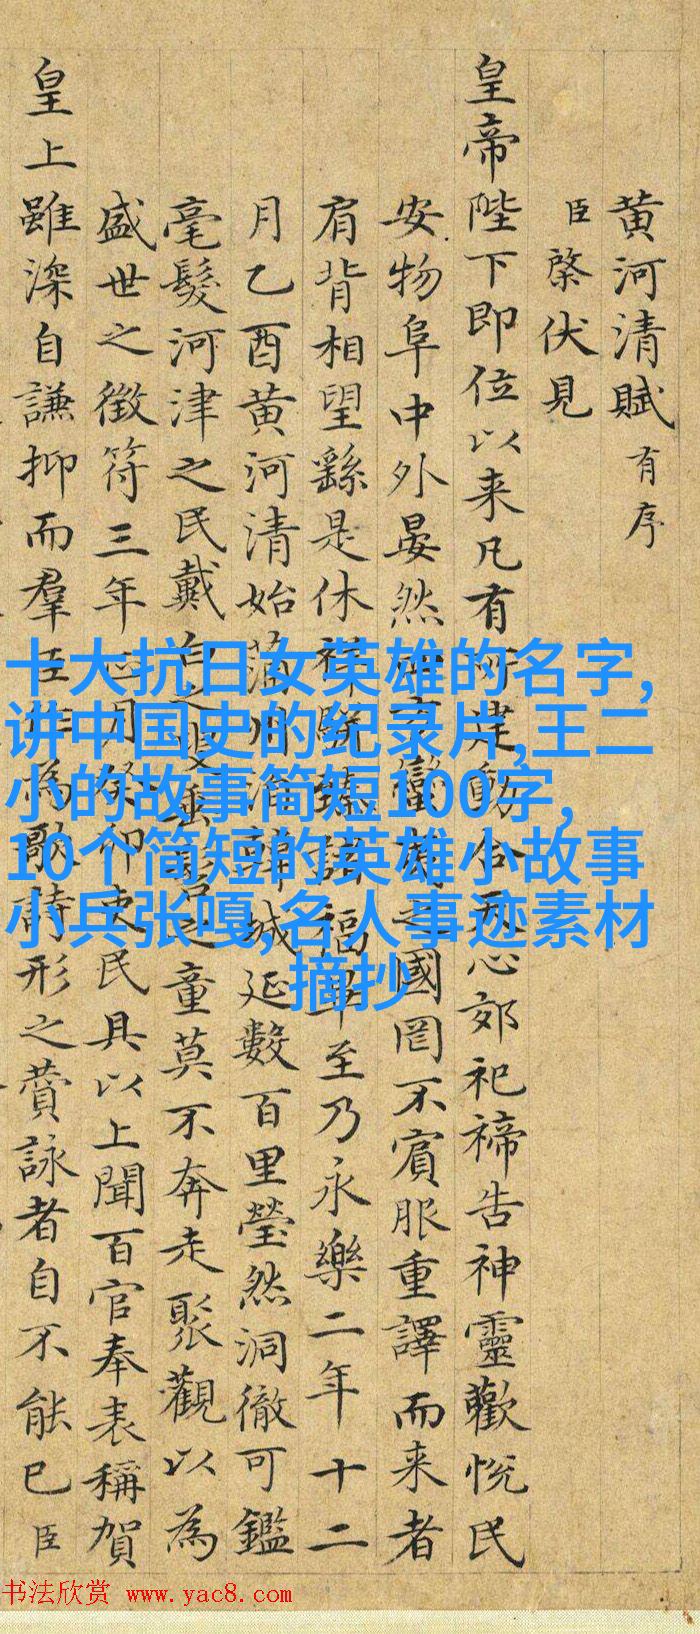 黄河清賦 有序
臣棨伏見
皇帝陛下即位以来凡有所建動合天心郊祀禘告神靈歡悦民
安物阜中外晏然蠻國罔不賓服重譯而来者
肩背相望繇是休祥臻諸福畢至乃永樂二年十二
月乙酉黄河清始蒲州韓城延數百里瑩然洞徹可鑑
毫髮河津之民戴白之叟垂髫之童莫不奔走聚觀以為
盛世之徵符三年正月癸卯吏民具以上聞百官奉表稱賀
皇上雖深自謙抑而羣臣為歌詩形之賛詠者自不能已臣
十大抗日女英雄的名字,
讲中国史的纪录片,王二
小的故事简短100字,
10个简短的英雄小故事
小兵张嘎,名人事迹素材
摘抄
书法欣赏 www.yac8.com